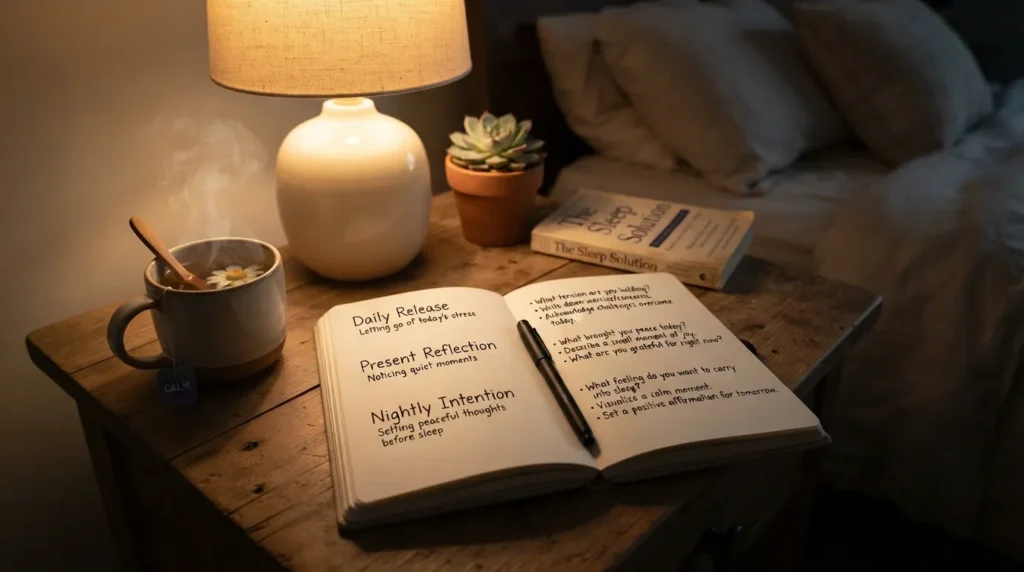 CALM
The Sleep
Solution
The Sleep Solution
Daily Release
Letting go of today's stress
Present Reflection
Noticing quiet moments
Nightly Intention
Setting peaceful thoughts
before sleep
• What tension are you holding?
• Write down
• Acknowledge challenges overcome
today.
• What brought you peace today?
• Describe a small moment of joy.
• What are you grateful for right now?
• What feeling do you want to carry
into sleep?
• Visualize a calm moment.
• Set a positive affirmation for tomorrow.